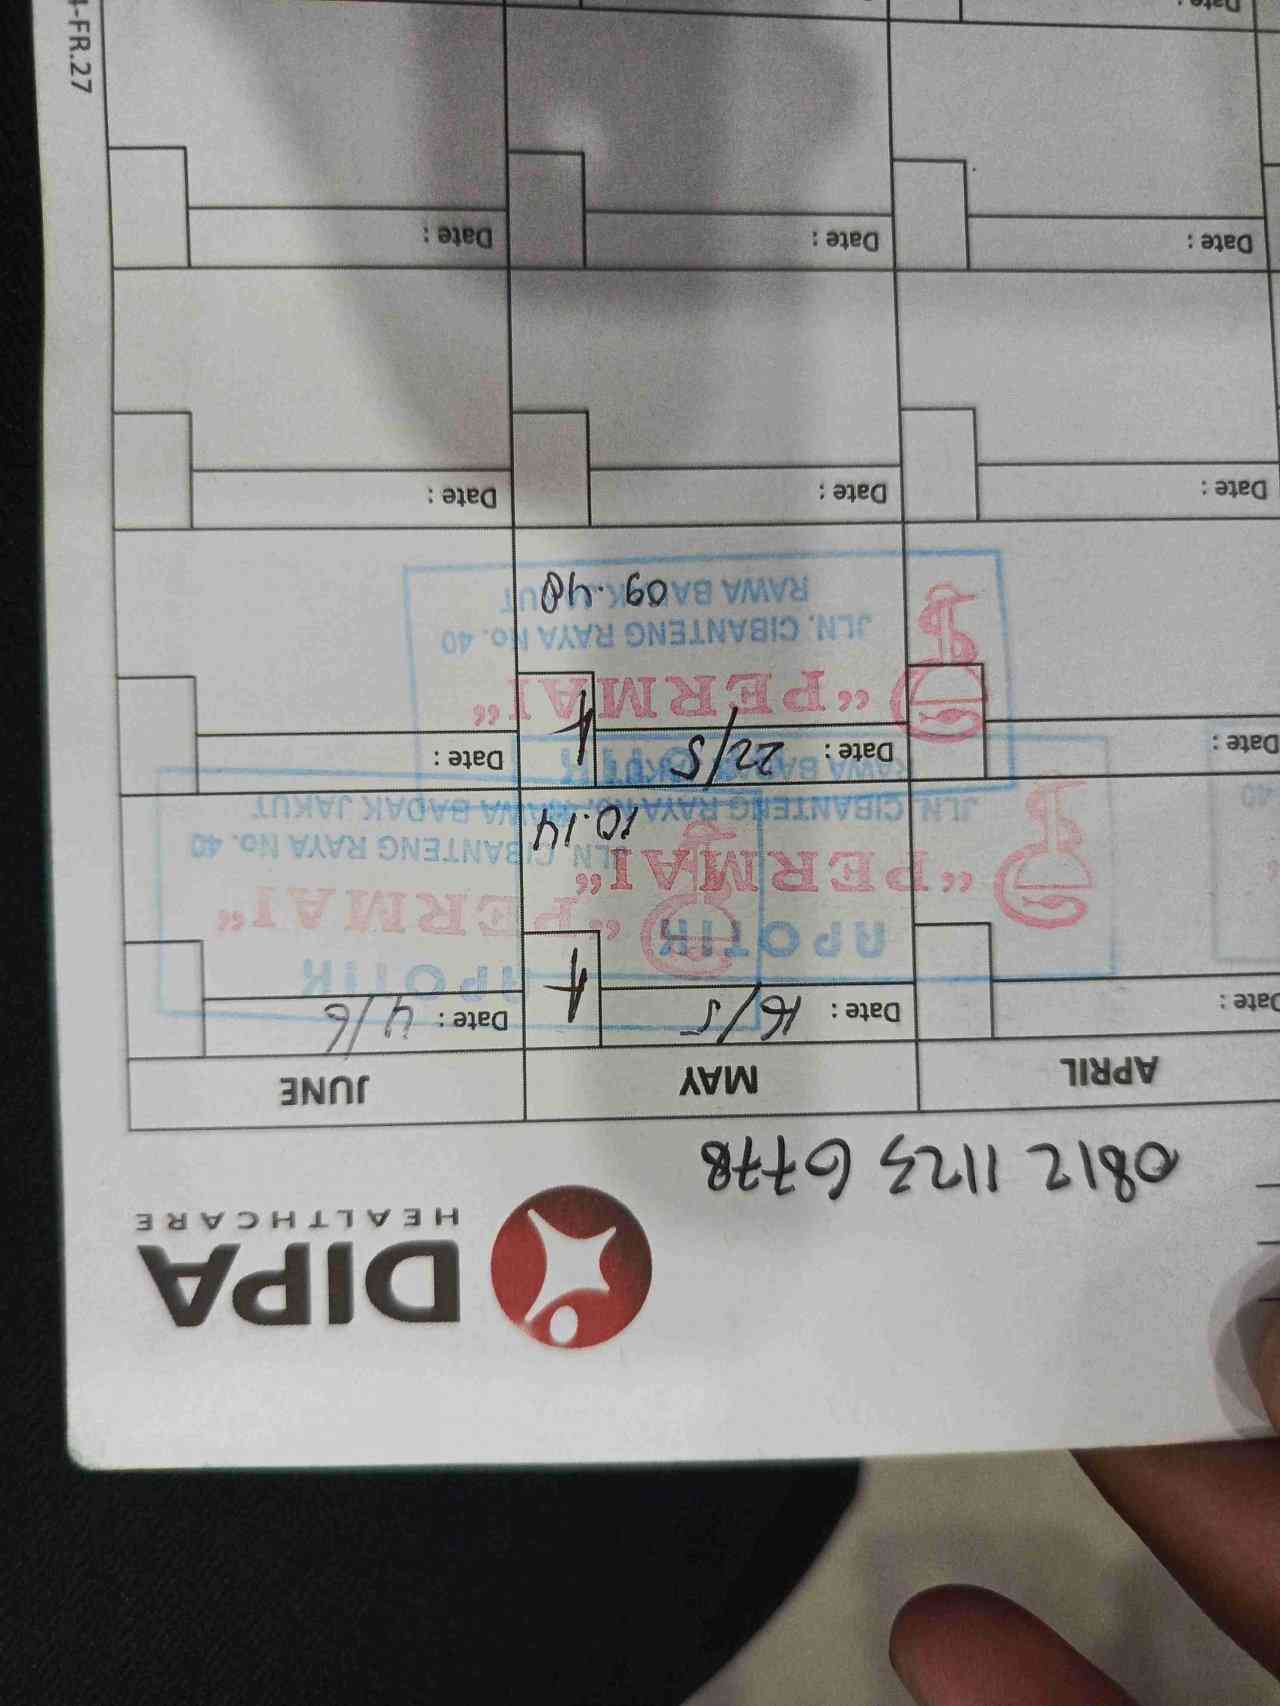 DIPA
HEALTHCARE
0812 1123 6778
APRIL MAY JUNE
Date : Date : 16/5 Date : 4/6
APOTIK
"PERMAI"
JLN. CIBANTENG RAYA No.
RAWA BADAK
10.14
APOTIK
"PERMAI"
JLN. CIBANTENG RAYA No. 40
RAWA BADAK JAKUT
40
Date : Date : 22/5 Date :
"PERMAI"
JLN. CIBANTENG RAYA No. 40
RAWA BADAK
09.48
Date : Date : Date :
Date : Date : Date :
Date :
-FR.27